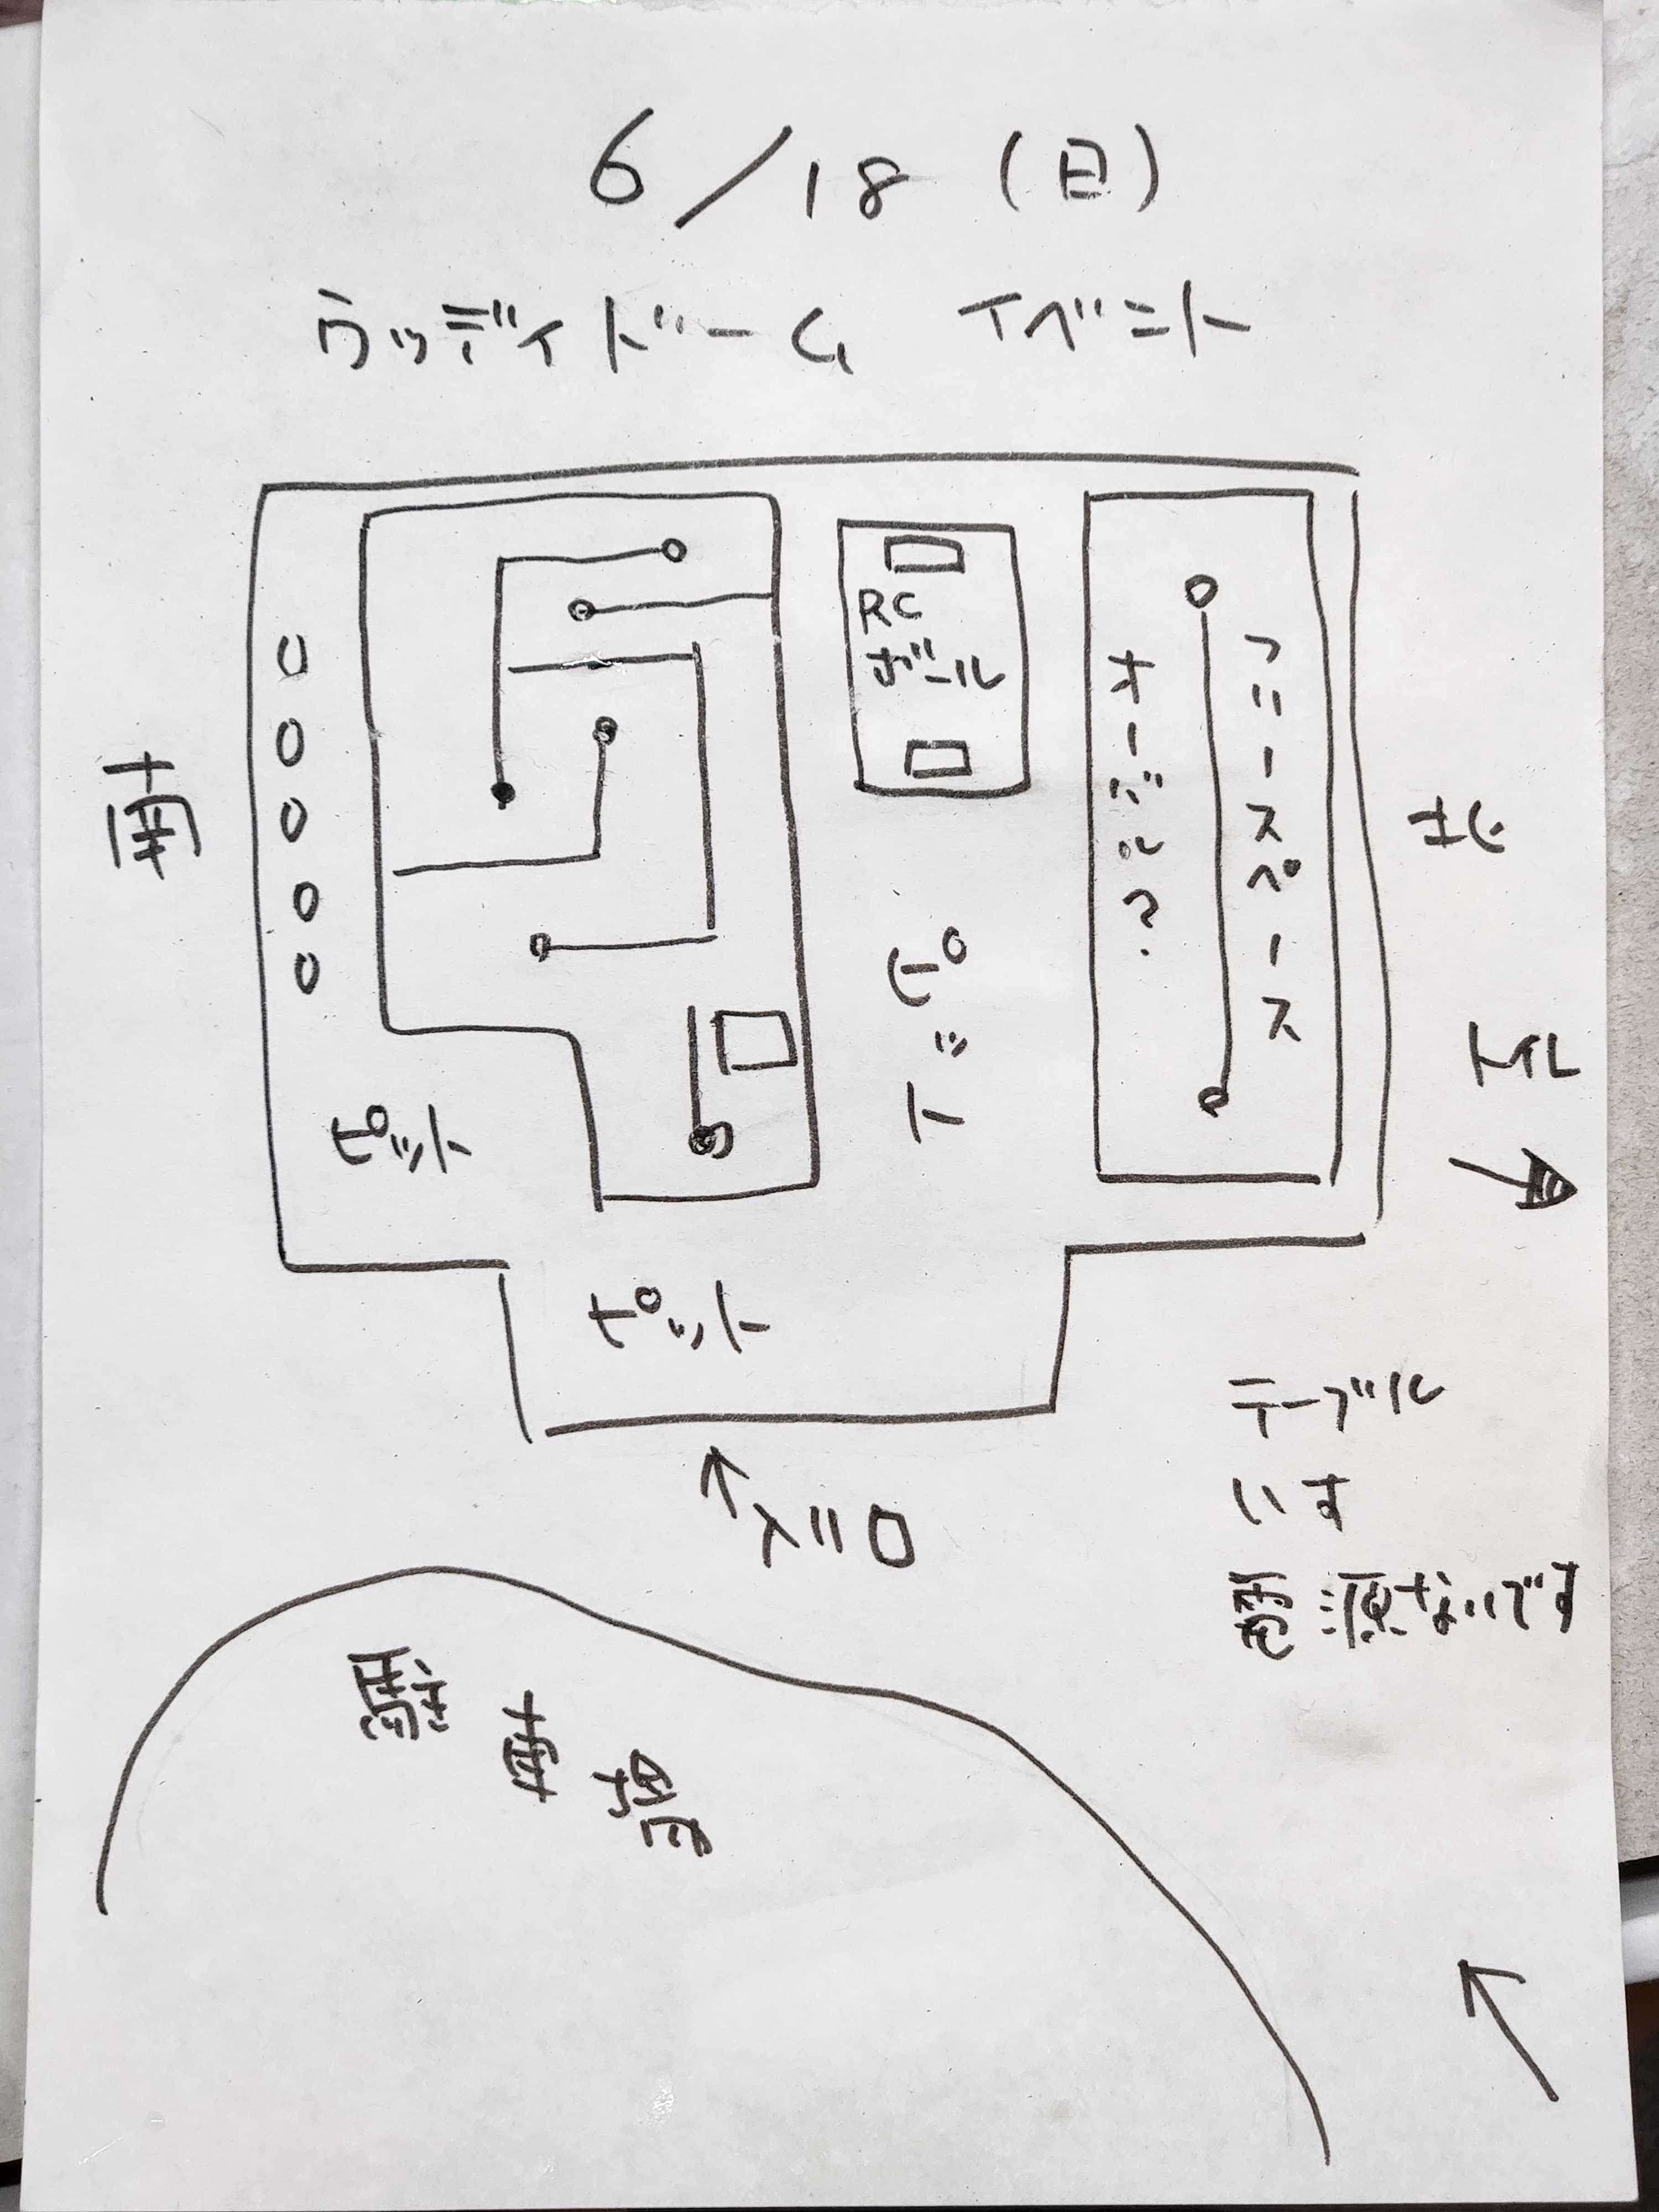 6/18(日)
ウッディドーム イベント
RC
ボール
オーバル?
フリースペース
南
北
ピット
ピット
ピット
トイレ
入り口
テーブル
いす
電源ないです
駐車場